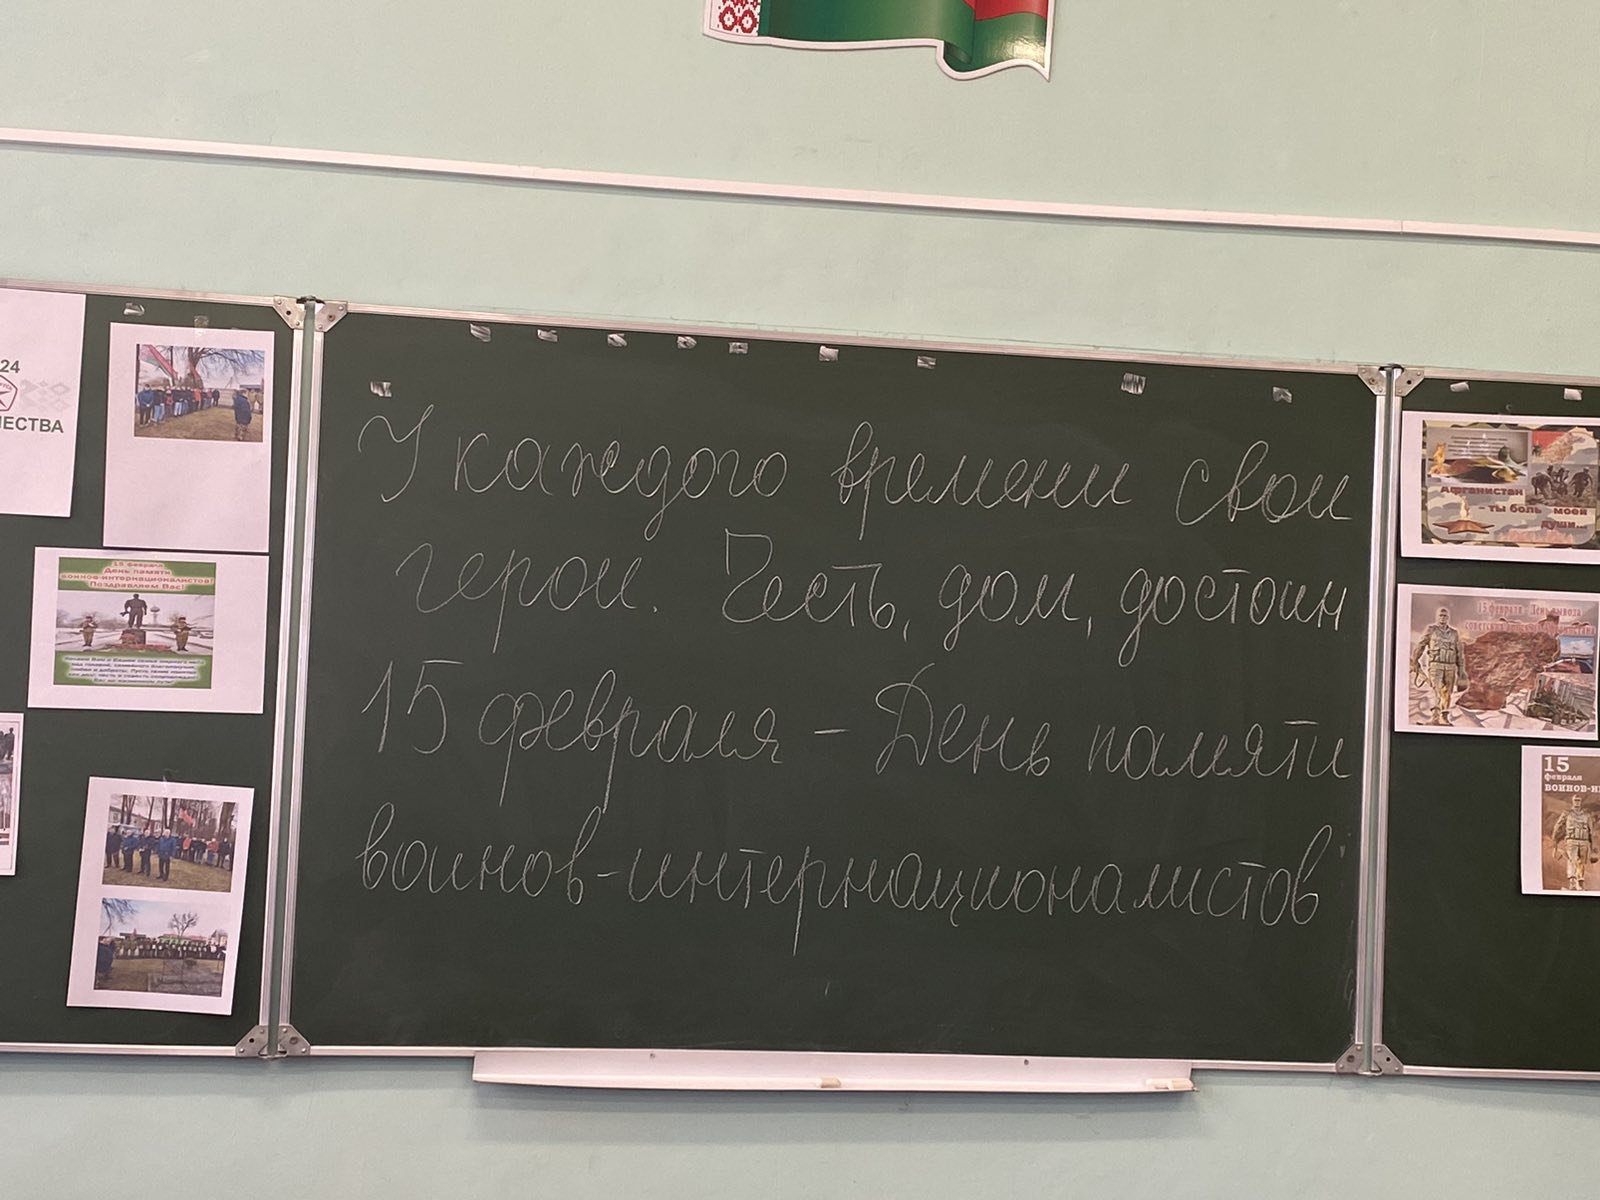 24
ЧЕСТВА
15 февраля
День памяти
воинов-интернационалистов!
Поздравляем Вас!
У каждого времени свои
герои. Честь, дом, достоин
15 февраля – День памяти
воинов-интернационалистов
Афганистан
– ты боль моей
души...
15 февраля - День вывода
советских войск из Афганистана
15
февраля
ВОИНОВ-И